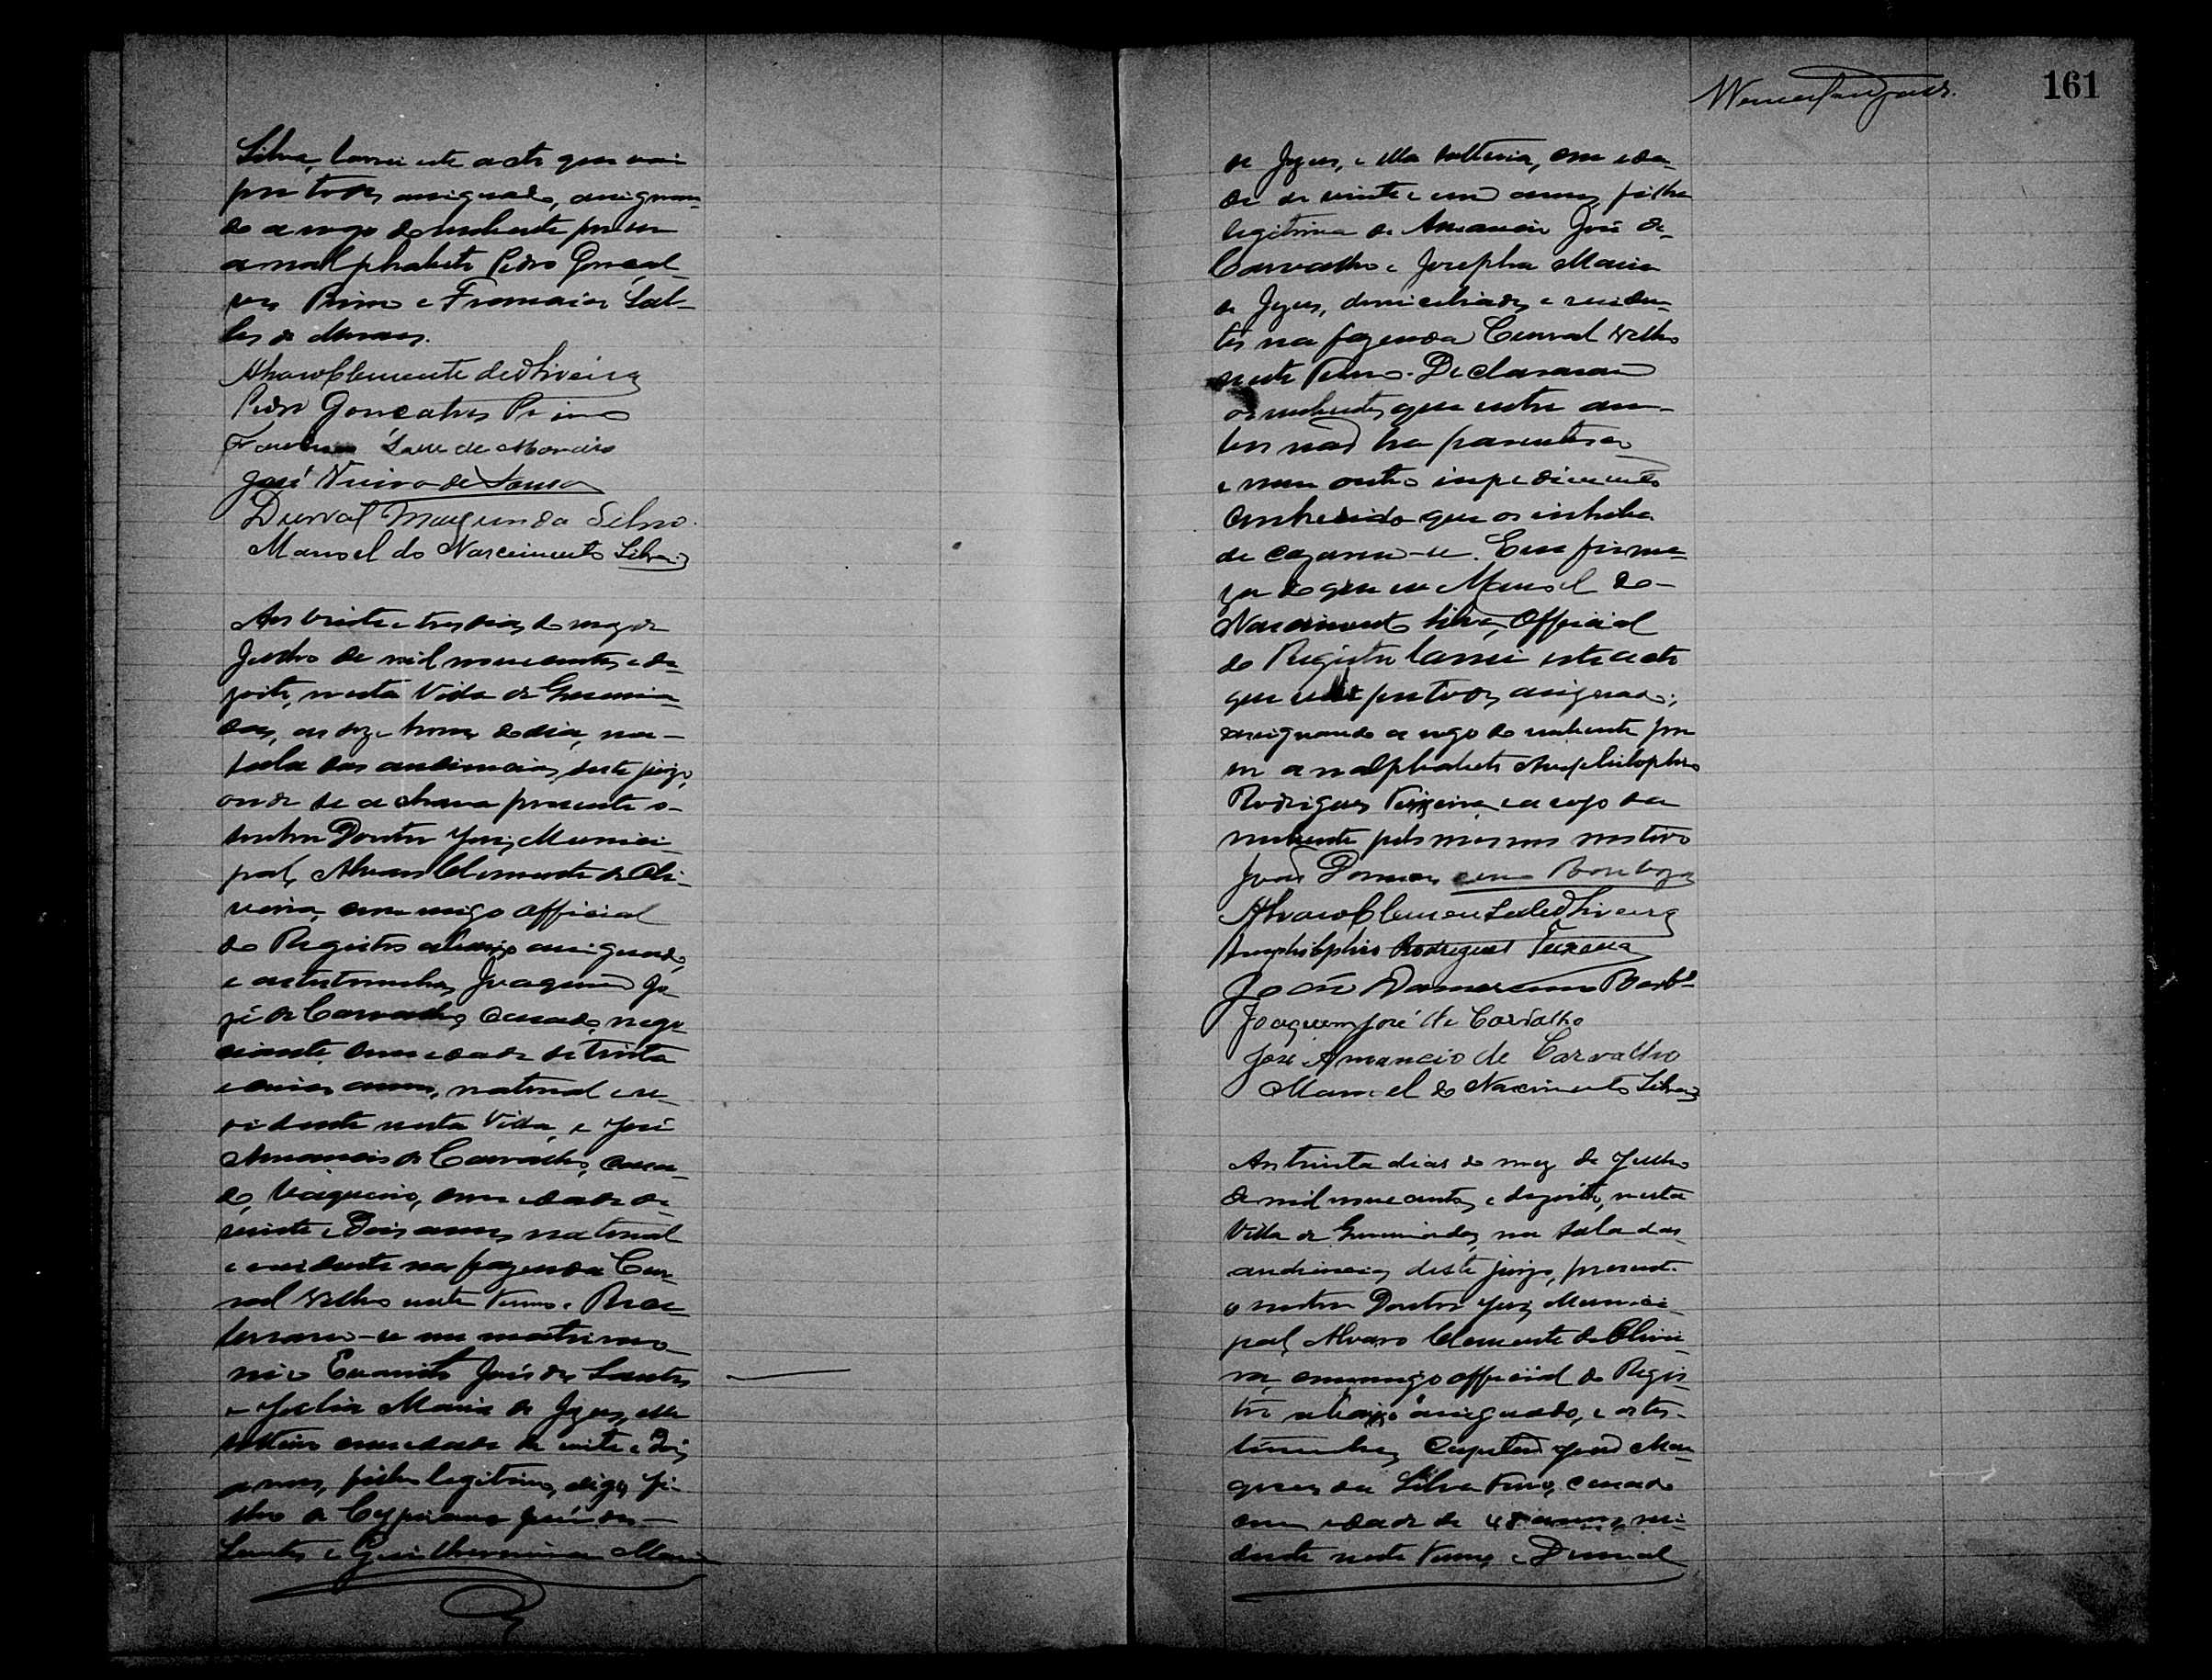 Silva, lavrei este acto que vai
por todos assignado, assignan-
do a rogo do nubente por ser
analphabeto Pedro Gonçal-
ves Primo e Francisco Sal-
les de Moraes.
Alvaro Clemente de Oliveira
Pedro Gonçalves Primo
Francisco Salle de Moraes
José Vieira de Sousa
Durval Marques da Silva.
Manoel do Nascimento Silva
Aos vinte e tres dias do mez de
Julho de mil novecentos e de-
zoito, nesta Villa de
as doze horas do dia, na
sala das audiencias deste juizo,
onde se achava presente o
senhor Doutor Juiz Munici-
pal, Alvaro Clemente de Oli-
veira, commigo official
do Registro abaixo assignado,
e as testemunhas Joaquim Jo-
zé de Carvalho, casado, nego-
ciante, com edade de trinta
e annos, natural e re-
sidente nesta Villa, e José
Amancio de Carvalho, casa-
do, vaqueiro, com edade de
vinte e dois annos, natural
e residente na fazenda Cur-
ral Velho neste Termo. Rece-
beram-se em matrimo-
nio José dos Santos
e Julia Maria de Jezus, elle
solteiro com edade de vinte e dois
annos, filho legitimo, digo, fi-
lho de Cypriano José dos
Santos e Guilhermina Maria
161
de Jezus, e ella solteira, com eda-
de de vinte e um annos, filha
legitima de Amancio José de
Carvalho e Josepha Maria
de Jezus, domiciliados e residen-
tes na fazenda Curral Velho
neste Termo. Declararam
os nubentes que entre am-
bos não ha parentesco
e nem outro impedimento
conhecido que os inhiba
de cazarem-se. Em firme-
za do que eu Manoel do
Nascimento Silva, Official
do Registro lavrei este acto
que vai por todos assignado;
assignando a rogo do nubente por
ser analphabeto Amphilophio
Rodrigues Teixeira e a rogo da
nubente pelo mesmo motivo
João Damasceno Barboza
Alvaro Clemente de Oliveira
Amphilophio Rodrigues Teixeira
João Damasceno Barbª
Joaquim José de Carvalho
José Amancio de Carvalho
Manoel do Nascimento Silva
Aos trinta dias do mez de Julho
de mil novecentos e dezoito, nesta
Villa de na sala das
audiencias deste juizo, presente
o senhor Doutor Juiz Munici-
pal, Alvaro Clemente de Olivei-
ra, commigo official do Regis-
tro abaixo assignado, e as tes-
temunhas, Capitão João Mar-
ques da Silva casado
com edade de 48 annos, resi-
dente neste Termo, e Durval